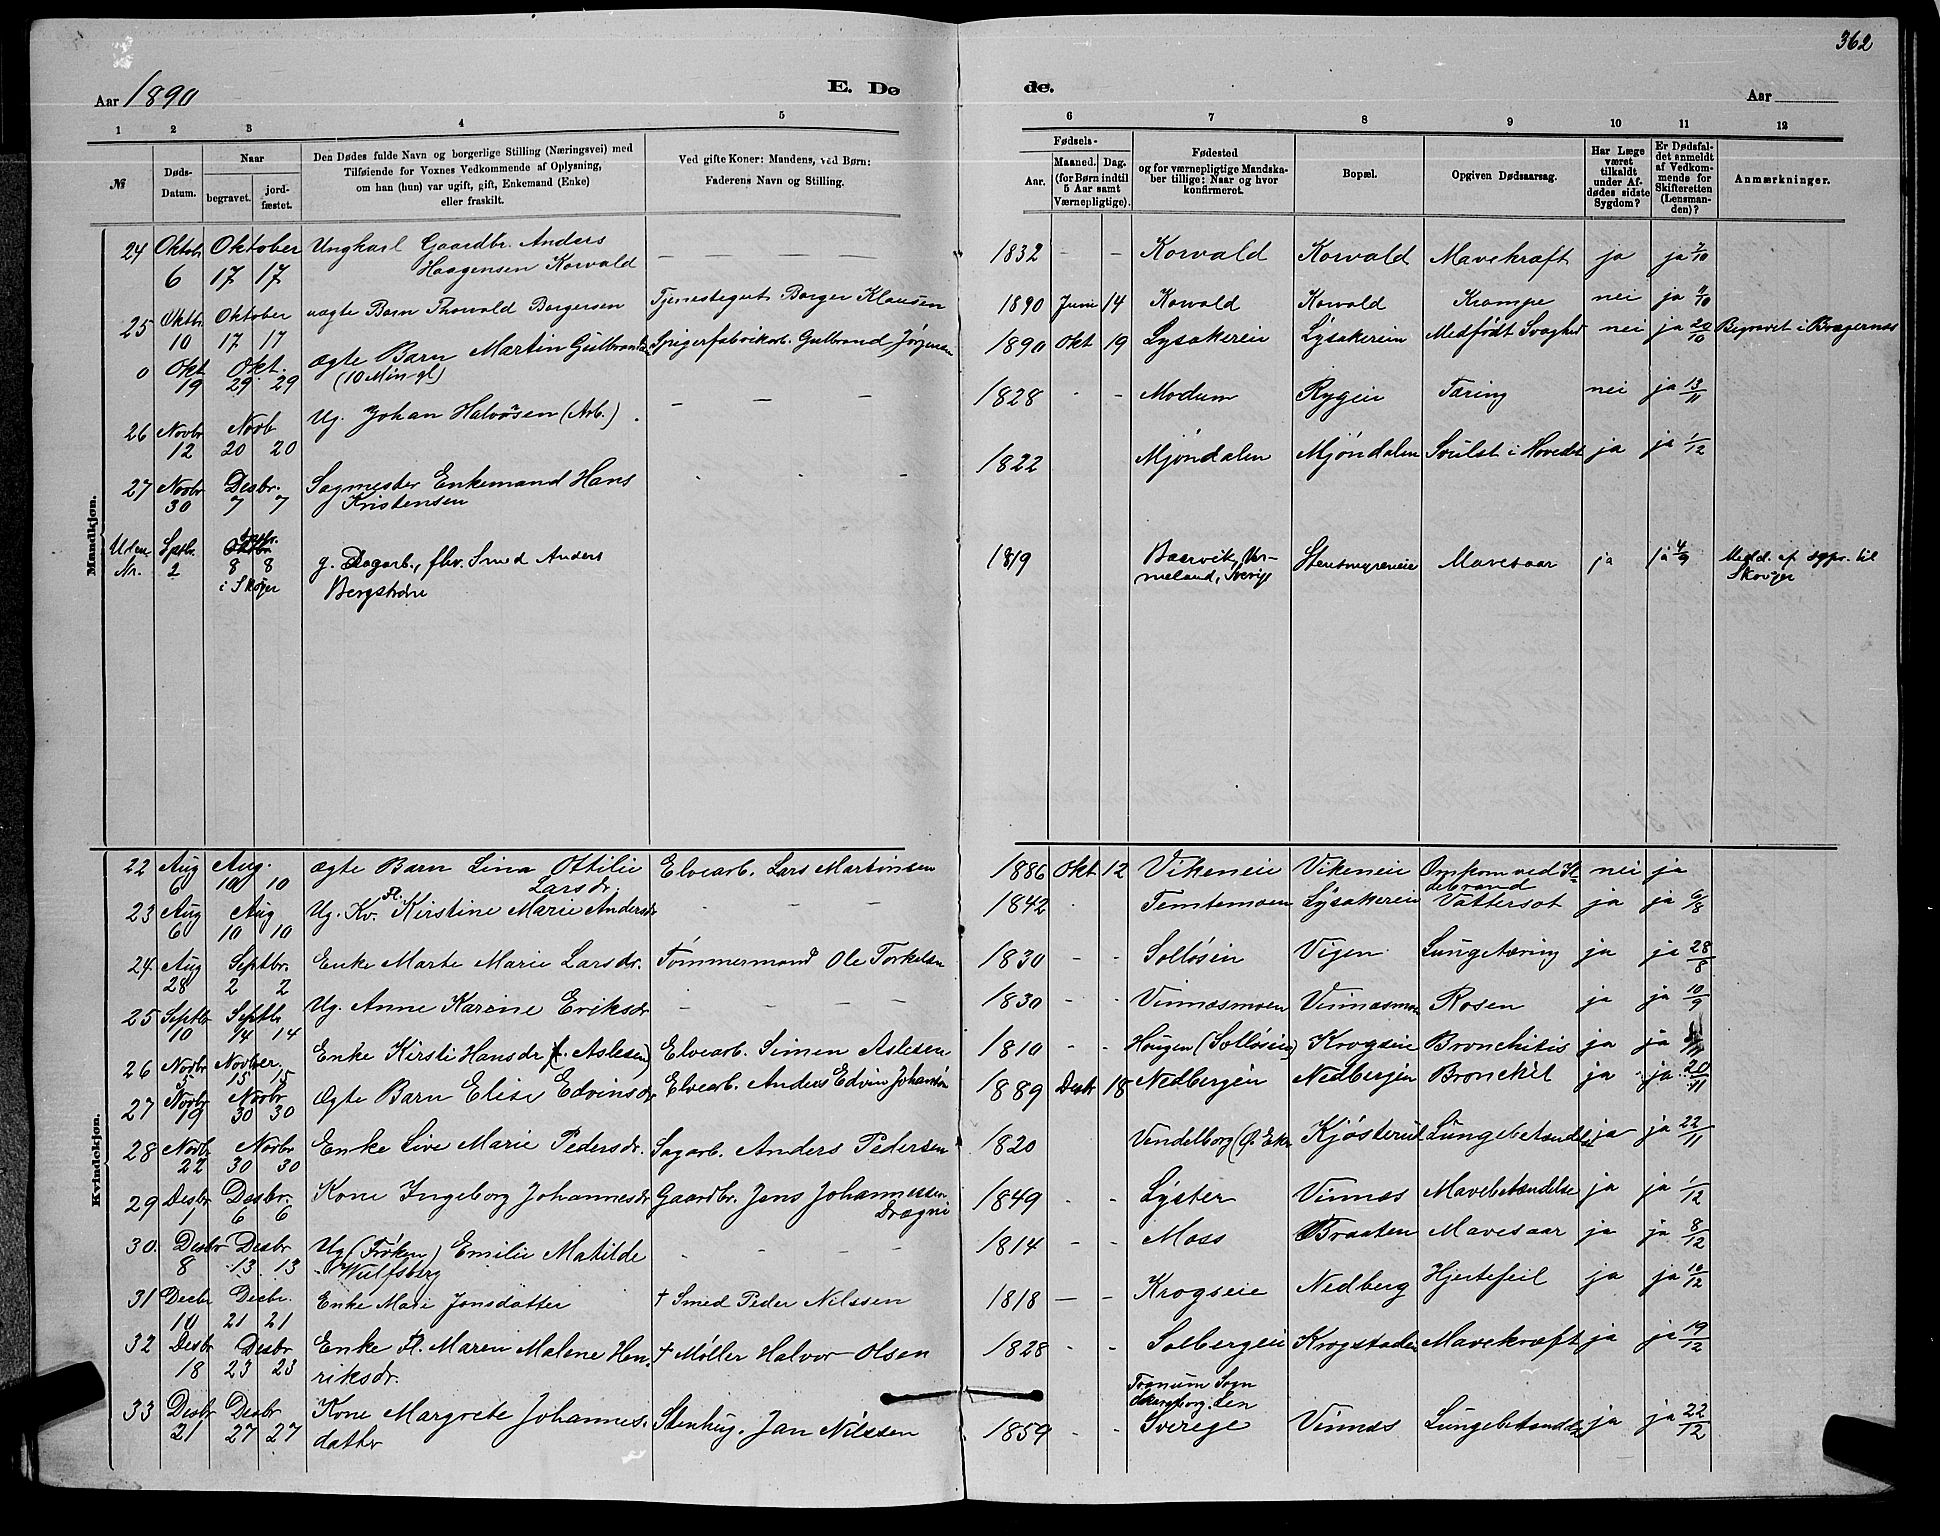 362
Aar 1890
E. Dø
de.
Aar
1 2 3 4 5 6 7 8 9 10 11 12
№
Døds-Datum.
Naar
begravet.
jordfæstet.
Den Dødes fulde Navn og borgerlige Stilling (Næringsvei) med
Tilføiende for Voxnes Vedkommende af Oplysning,
om han (hun) var ugift, gift, Enkemand (Enke)
eller fraskilt.
Ved gifte Koner: Mandens, ved Børn:
Faderens Navn og Stilling.
Fødsels-
Aar.
Maaned. Dag.
(for Børn indtil
5 Aar samt
Værnepligtige).
Fødested
og for værnepligtige Mandska-
ber tillige: Naar og hvor
konfirmeret.
Bopæl.
Opgiven Dødsaarsag.
Har Læge
været
tilkaldt
under Af-
dødes sidste
Sygdom?
Er Dødsfal-
det anmeldt
af Vedkom-
mende for
Skifteretten
(Lensman-
den)?
Anmærkninger.
Mandkjøn.
24 Oktob. Oktober Ungkarl Gaardbr. Anders — — — 1832 - - Korvald Korvald Mavekræft ja ja 7/10
6 17 17 Haagensen Korvald
25 Oktbr. Oktober ægte Barn Thorvald Borgersen Tjenestegut Borger Klausen 1890 Juni 14 Korvald Korvald Krampe nei ja 11/10
10 17 17
0 Okt Okt. ægte Barn Martin Gulbrandsen Spigerfabrikarb. Gulbrand Jørgensen 1890 Okt 19 Lysakereie Lysakereie Medfødt Svaghed nei ja 20/10 Begravet i Bragernæs
19 29 29 (10 Min gl)
26 Novbr Novb Ug. Johan Halvorsen (Arb.) — — — 1828 - - Modum Rygeie Tæring nei ja 13/11
12 20 20
27 Novbr Desbr. Sagmester Enkemand Hans - - - 1822 Mjøndalen Mjøndalen Svulst i Hovedet ja ja 1/12
30 7 7 Kristensen
Uden Sptbr. Septbr. g. Dagarb., fhv. Smed Anders 1819 Værmeland, Sverige Stensmyreneie Mavesaar ja ja 4/9 Medd. af sgpr. til
Nr. 2 8 8 Bergstrøm Skoger
i Skoger
Kvindekjøn.
22 Aug Aug. ægte Barn Lina Ottilie Elvearb. Lars Martinsen 1886 Okt 12 Vikeneie Vikeneie Omkom ved Il- nei ja
6 10 10 Larsdr. debrand
23 Aug Aug Ug. Kv. Fl. Kirstine Marie Andersdr - - - 1842 - Temtemoen Lysakereie Vattersot ja ja 6/8
6 10 10
24. Aug Septbr. Enke Marte Marie Larsdr. Tømmermand Ole Torkelsen 1830 - - Solløsen Vigen Lungetæring ja ja 28/8
28 2 2
25 Septbr Septbr Ug. Anne Karine Eriksdr - - - 1830 - - Vinnæsmoen Vinnæsmoen Rosen ja ja 10/9
10 14 14
26 Novbr Novber Enke Kirsti Hansdr (f. Aslesen) Elvearb. Simen Aslesen 1810 - - Hougen (Solløsen) Krogseie Bronchitis ja ja
5 15 15
27 Novbr Novbr ægte Barn Elise Edvinsdr Elvearb. Anders Edvin Johansen 1889 Desbr 18 Nedbergeie Nedbergeie Bronchit ja ja 20/11
19 30 30
28 Novbr Novbr Enke Live Marie Pedersdr. Sagarb. Anders Pedersen 1820 Vendelborg (Ø. Eker) Kjøsterud Lungebetændelse ja ja 22/11
22 30 30
29 Desbr Desbr. Kone Ingeborg Johannesdr Gaardbr. Jens Johannessen 1849 - - Lyster Vinnæs Mavebetændelse ja ja 1/12
1 6 6 Drægni
30. Desbr Desbr Ug (Frøken) Emilie Matilde - - - 1814 - - Moss Braaten Mavesaar ja ja 8/12
8 13 13 Wulfsberg
31 Decbr Decbr. Enke Mari Jonsdatter † Smed Peder Nilssen 1818 — — Krogseie Nedberg Hjertefeil ja ja 10/12
10 21 21
32 Desbr Desbr Enke Fl. Maren Malene Hen- † Møller Halvor Olsen 1828 - - Solbergeie Krogstadeie Mavekræft ja ja 19/12
18 23 23 riksdr.
33 Desbr Desbr Kone Margrete Johannes- Stenhug. Jan Nilssen 1859 - - Tranum Sogn Skaraborg Len Sverege Vinnæs Lungebetændelse ja ja 22/12
21 27 27 datter